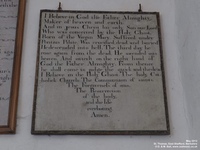 I Believe in God the Father Almighty,
Maker of heaven and earth.
And in Jesus Christ his only Son our Lord
Who was conceived by the Holy Ghost
Born of the Virgin Mary, Suffered under
Pontius Pilate, Was crucified dead and buried
He descended into hell. The third day he
rose again from the dead. He ascended into
heaven. And sitteth on the right hand of
God the Father Almighty. From thence
he shall come to judge the quick and the dead
I Believe in the Holy Ghost. The holy Ca-
tholick Church. The Communion of saints.
The Forgiveness of sins.
The Resurrection
of the body.
and the life
everlasting.
Amen.